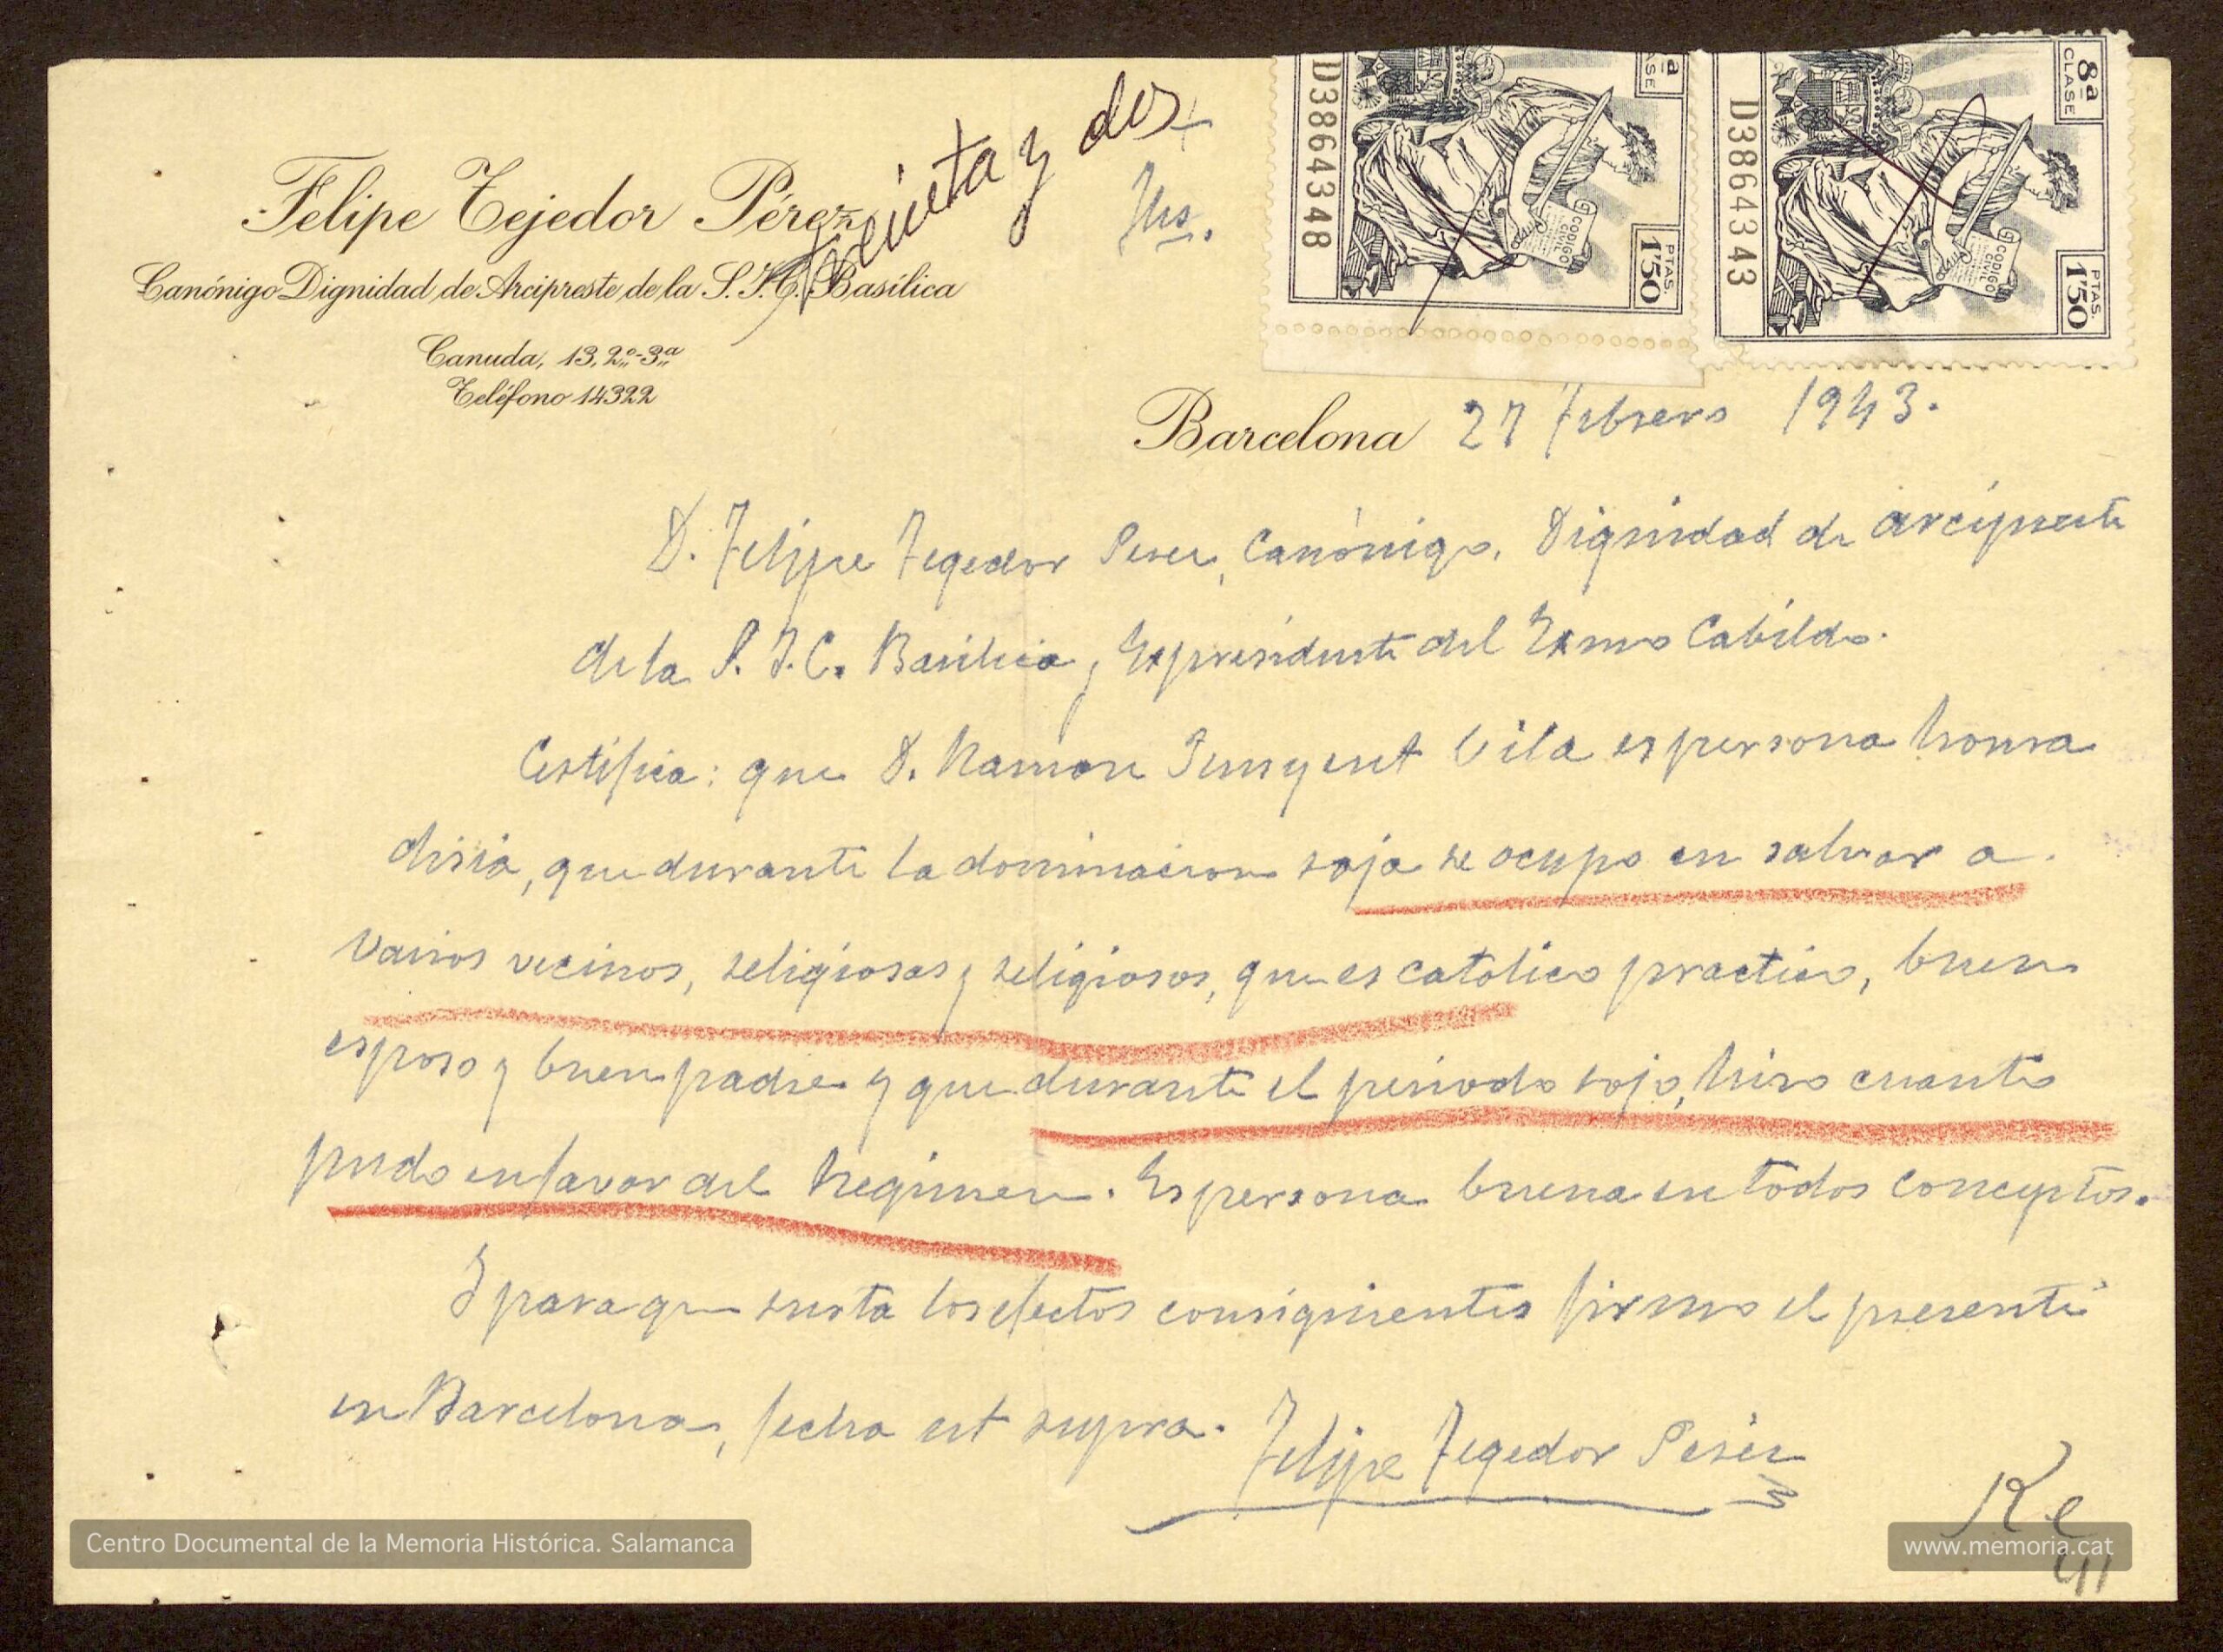 Felipe Tejedor Pérez
Canónigo Dignidad de Arcipreste de la S.I.C. Basílica
Canuda, 13, 2º-3ª
Teléfono 14322
treinta y dos
Jhs.
D3864348
ª
CLASE
CODIGO CIVIL
PTAS.
1'50
D3864343
8ª
CLASE
CODIGO CIVIL
PTAS.
1'50
Barcelona 27 Febrero 1943.
D. Felipe Tegedor Perez, Canónigo, Dignidad de arcipreste
de la S. I. C. Basilica y Expresidente del Exmo Cabildo.
Certifica: que D. Ramon Junyent Vila es persona honra
disia, que durante la dominacion roja se ocupo en salvar a
varios vecinos, religiosas y religiosos, que es catolico practico, buen
esposo y buen padre y que durante el periodo rojo, hizo cuanto
pudo en favor del Regimen. Es persona buena en todos conceptos.
Y para que surta los efectos consiguientes firmo el presente
en Barcelona, fecha ut supra. Felipe Tegedor Perez
Centro Documental de la Memoria Histórica. Salamanca
www.memoria.cat